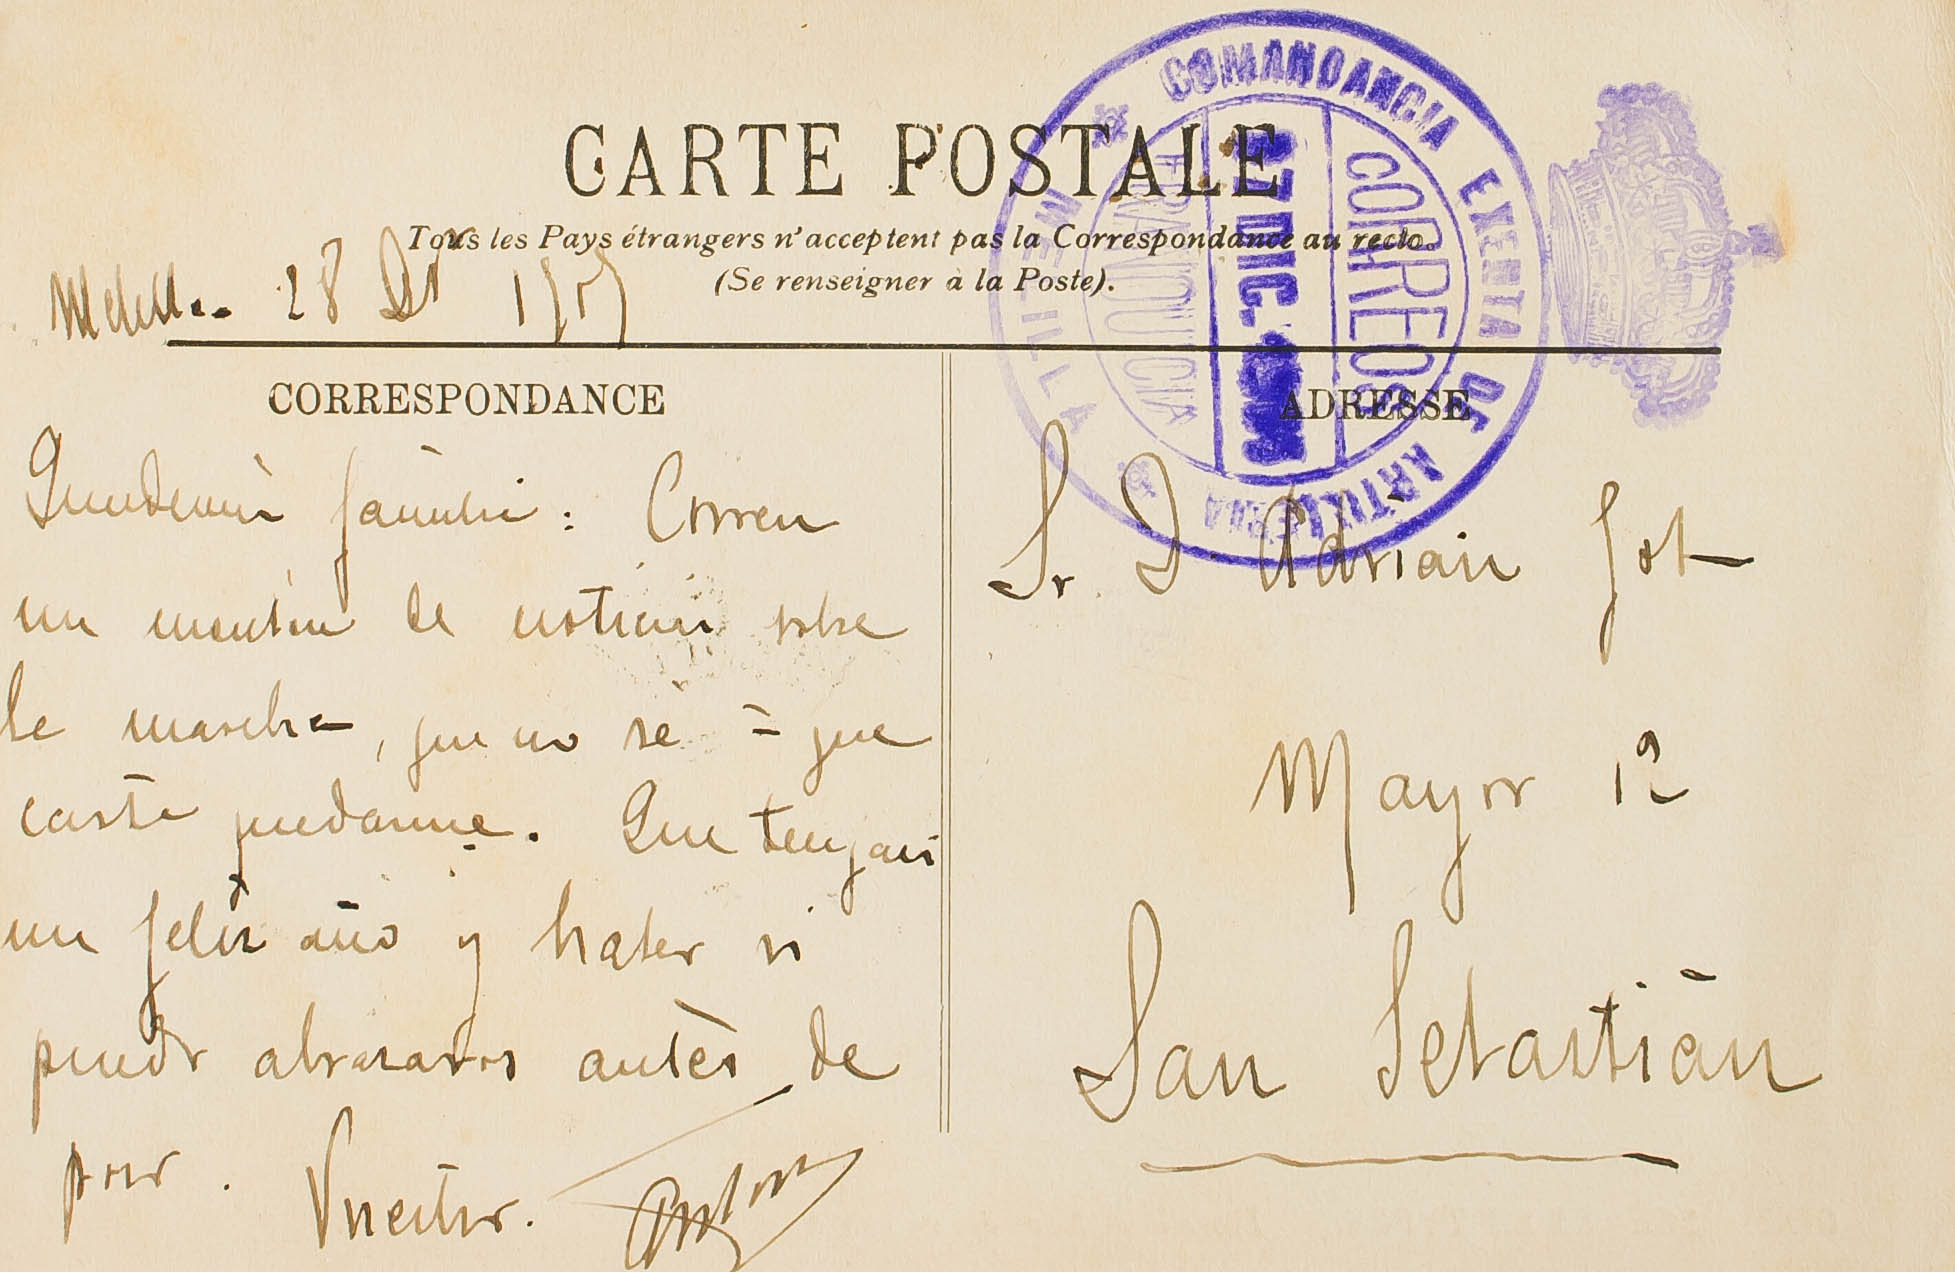 CARTE POSTALE
Tous les Pays étrangers n'acceptent pas la Correspondance au recto.
(Se renseigner à la Poste).
Melilla 28 Dr
COMANDANCIA EXENTA DE ARTILLERIA
MELILLA
FRANQUICIA
27 DIC.
CORREOS
CORRESPONDANCE
Querdemia familia: Corren
un monton de noticias sobre
la marcha, que no sé a que
carta quedarme. Que tengais
un feliz año y haber si
puedo abrazaros antes de
poco. Vuestro.
ADRESSE
Sr. D. Adrian Got
Mayor 12
San Sebastián